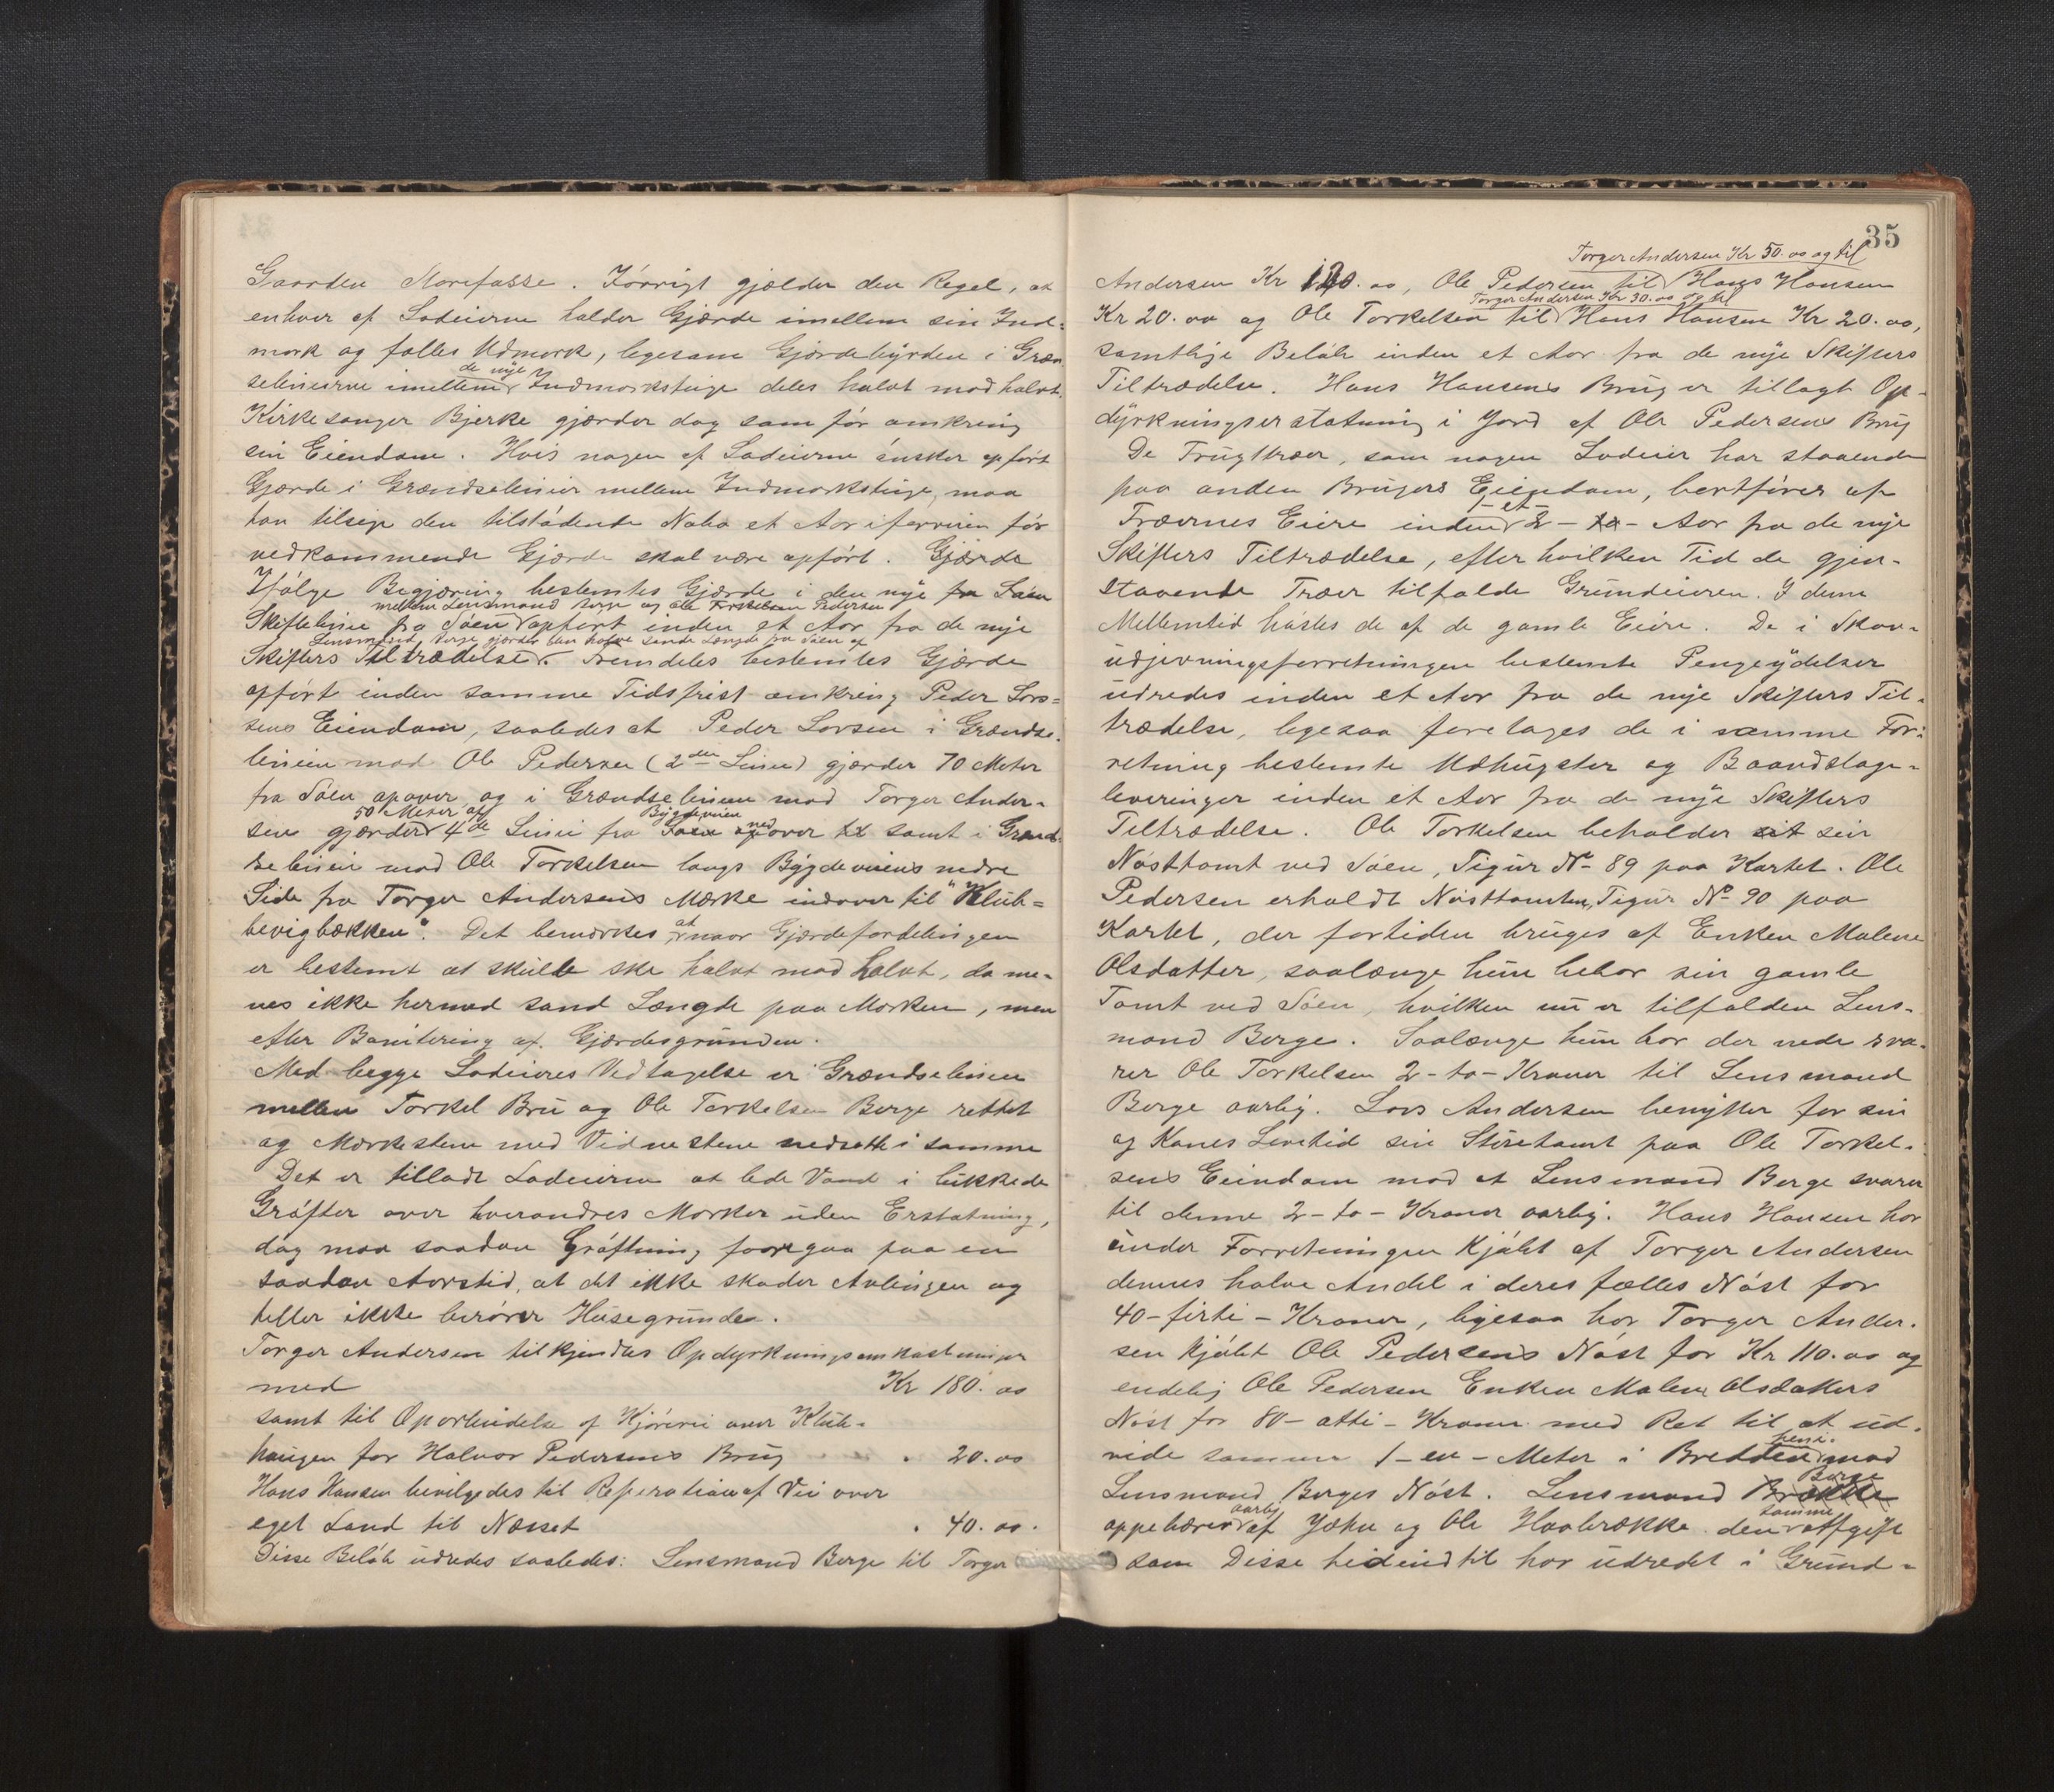 Gaarden Storefosse. Forvrigt gjælder den Regel, at
enhver af Lodeierne holder Gjærde imellem sin Ind-
mark og fælles Udmark, ligesom Gjærdebyrden i Græn
selinierne imellem de nye Indmarksteige deles halvt mod halvt.
Kirkesanger Bjerke gjærder dog som før omkring
sin Eiendom. Hvis nogen af Lodeierne ønsker opført
Gjærde i Grændselinier mellem Indmarksteige, maa
han tilsige den tilstødende Nabo et Aar iforveien før
vedkommende Gjærde skal være opført. Gjærde
Ifølge Begjæring bestemtes Gjærde i den nye fra Søen
mellem Lensmand Berge og Ole Torkelsen Pedersen
Skiftelinie fra Søen opført inden et Aar fra de nye
Lensmand Berge gjærder den halve søndre Længde fra Søen af
Skifters Tiltrædelse. Fremdeles bestemtes Gjærde
opført inden samme Tidsfrist omkring Peder Lars-
sens Eiendom, saaledes at Peder Larsen i Grændse-
linien mod Ole Pedersen (2den Linie) gjærder 70 Meter
fra Søen opover og i Grændselinien mod Torger Ander-
50 Meter af Bygdeveien ned
sen gjærder 4de Linie fra Søen opover samt i Grænd
selinien mod Ole Torkelsen langs Bygdeveiens nedre
Side fra Torger Andersens Mærke indover til "Klub-
bevigbækken". Det bemærkes at naar Gjærdefordelingen
er bestemt at skulle ske halvt mod halvt, da me-
nes ikke hermed sand Længde paa Marken, men
efter Bonitering af Gjærdesgrunden.
Med begge Lodeieres Vedtagelse er Grændselinien
mellem Torkel Bru og Ole Torkelsen Berge rettet
og Mærkestene med Vidnestene nedsatte i samme
Det er tilladt Lodeierne at lede Vand i lukkede
Grøfter over hverandres Marker uden Erstatning,
dog maa saadan Grøftning foregaa paa en
saadan Aarstid, at det ikke skader Avlingen og
heller ikke berører Husegrunde.
Torger Andersen tilkjendtes Opdyrkningsomkostninger
med Kr 180.00
samt til Oparbeidelse af Kjørevei over Klub-
haugen for Halvor Pedersens Brug " 20.00
Hans Hansen bevilgedes til Reperation af Vei over
eget Land til Næsset " 40.00.
Disse Beløb udredes saaledes: Lensmand Berge til Torger
35
Torger Andersen Kr 50.00 og til
Andersen Kr 120.00, Ole Pedersen til Hans Hansen
Torger Andersen Kr 30.00 og til
Kr 20.00 og Ole Torkelsen til Hans Hansen Kr 20.00,
samtlige Beløb inden et Aar fra de nye Skifters
Tiltrædelse. Hans Hansens Brug er tillagt Op-
dyrkningserstatning i Jord af Ole Pedersens Brug
De Frugttræer, som nogen Lodeier har staaende
paa anden Brugers Eiendom, bortføres af
Træernes Eiere inden 1-et- 2-to- Aar fra de nye
Skifters Tiltrædelse, efter hvilken Tid de gjen-
staaende Træer tilfalde Grundeieren. I denne
Mellemtid høstes de af de gamle Eiere. De i Skov-
udjevningsforretningen bestemte Pengeydelser
udredes inden et Aar fra de nye Skifters Til-
trædelse, ligesaa foretages de i samme For-
retning bestemte Udhugster og Baandstage-
leveringer inden et Aar fra de nye Skifters
Tiltrædelse. Ole Torkelsen beholder sit sin
Nøsttomt ved Søen, Figur No 89 paa Kartet. Ole
Pedersen erholdt Nøsttomten, Figur No 90 paa
Kartet, der fortiden bruges af Enken Malene
Olsdatter, saalænge hun behar sin gamle
Tomt ved Søen, hvilken nu er tilfalden Lens-
mand Berge. Saalænge hun har den nede sva-
rer Ole Torkelsen 2-to-Kroner til Lensmand
Berge aarlig. Lars Andersen benytter for sin
og Kones Levetid sin Støretomt paa Ole Torkel-
sens Eiendom mod at Lensmand Berge svarer
til denne 2-to-Kroner aarlig. Hans Hansen har
under Forretningen kjøbt af Torger Andersen
dennes halve Andel i deres fælles Nøst for
40-firti-Kroner, ligesaa har Torger Ander-
sen kjøbt Ole Pedersens Nøst for Kr 110.00 og
endelig Ole Pedersen Enken Malene Olsdatters
Nøst for 80-otti-Kroner med Ret til at ud-
vide samme 1-en-Meter i Bredden heni- mod
Lensmand Berges Nøst. Lensmand Brække Berge
oppebærer aarlig af Johs og Ole Haabrække den samme Afgift
som Disse hidindtil har udredet i Grund-